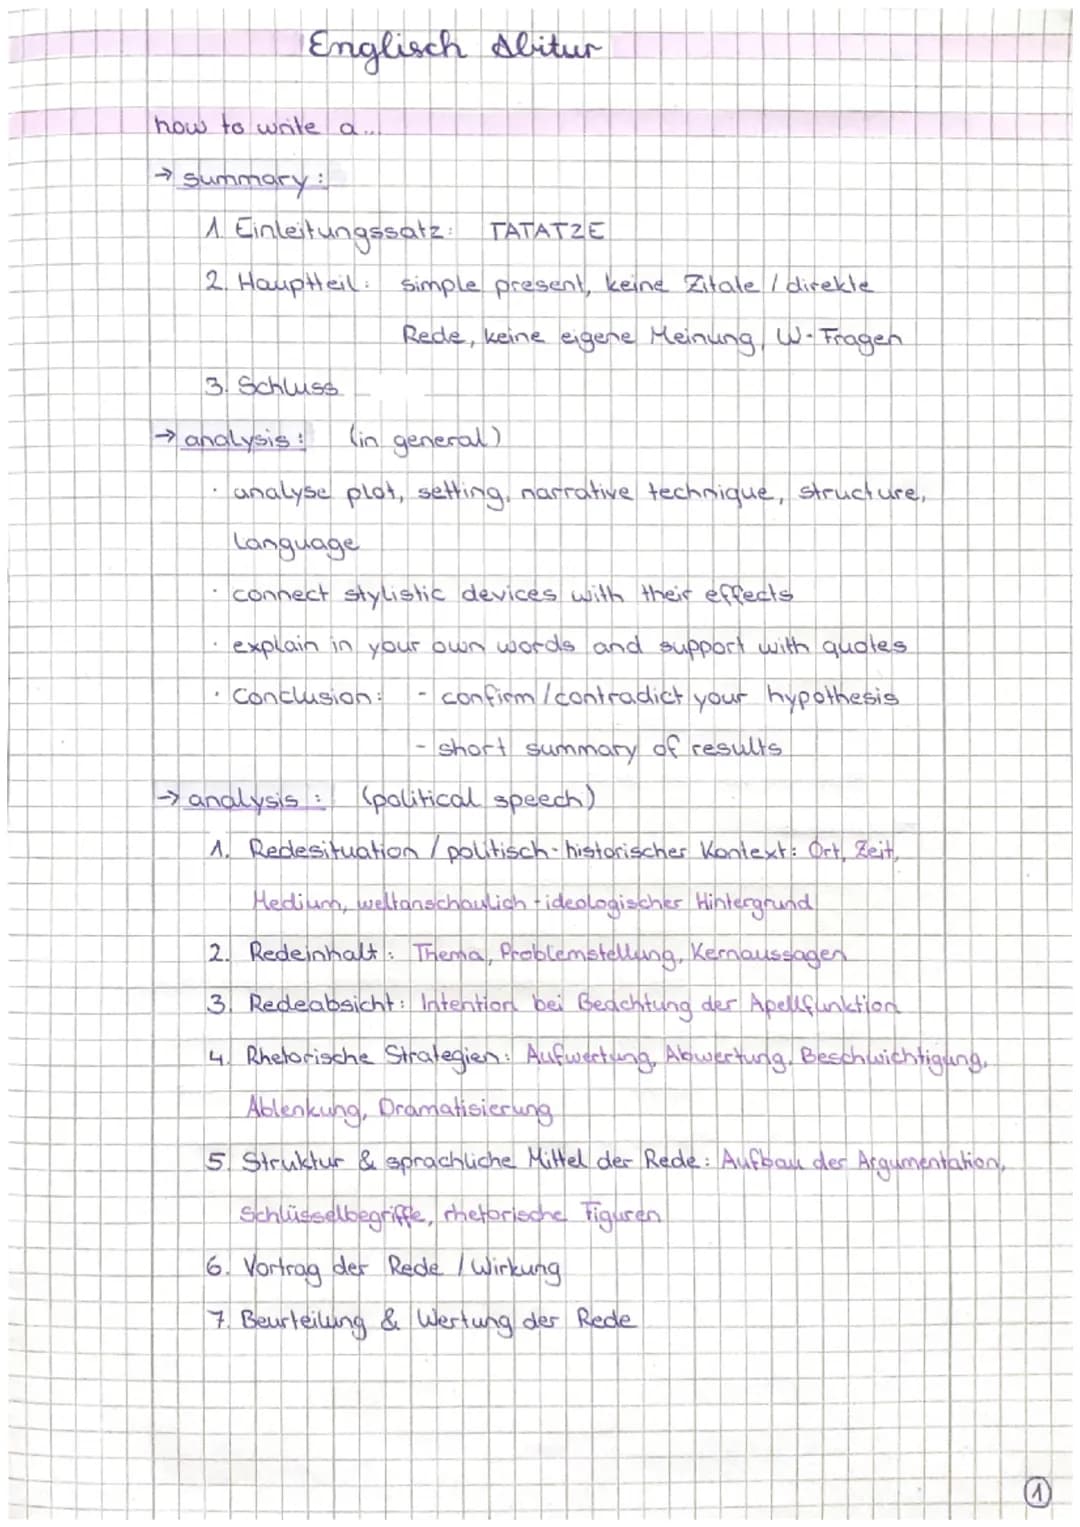 Englisch Abitur
how to write a...
→ summary:
1. Einleitungssatz: TATATZE
2. Hauptteil: simple present, keine Zitate / direkte
Rede, keine eigene Meinung, W-Fragen
3. Schluss
→ analysis: (in general)
· analyse plot, setting, narrative technique, structure,
language
· connect stylistic devices with their effects
· explain in your own words and support with quotes
· Conclusion: - confirm/contradict your hypothesis
- short summary of results
→ analysis: (political speech)
1. Redesituation / politisch-historischer Kontext: Ort, Zeit,
Medium, weltanschaulich-ideologischer Hintergrund
2. Redeinhalt: Thema, Problemstellung, Kernaussagen
3. Redeabsicht: Intention bei Beachtung der Apellfunktion
4. Rhetorische Strategien: Aufwertung, Abwertung, Beschwichtigung,
Ablenkung, Dramatisierung
5. Struktur & sprachliche Mittel der Rede: Aufbau der Argumentation,
Schlüsselbegriffe, rhetorische Figuren
6. Vortrag der Rede / Wirkung
7. Beurteilung & Wertung der Rede
1